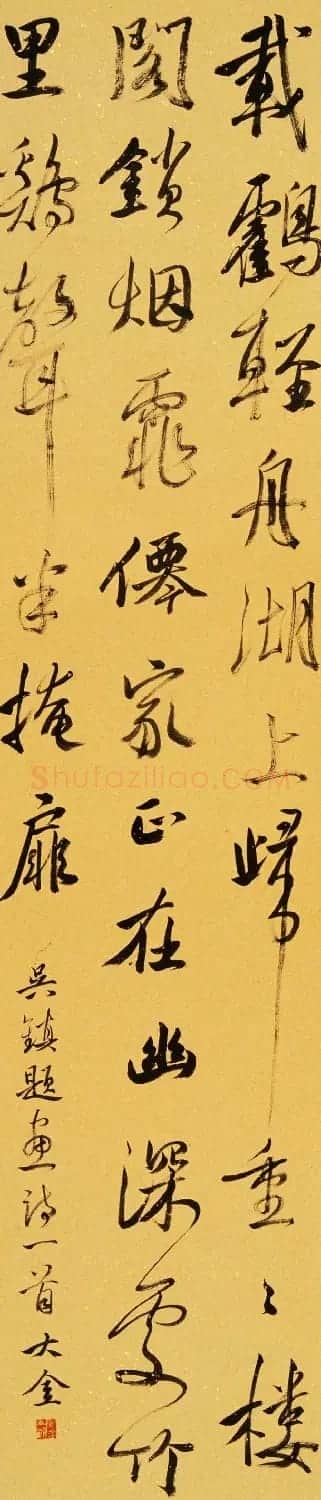 載鶴輕舟湖上歸重〻楼
閣鎖烟霏僊家正在幽深處竹
里鷄聲半掩扉
吴鎮題畫詩一首大金
Shufaziliao.COM